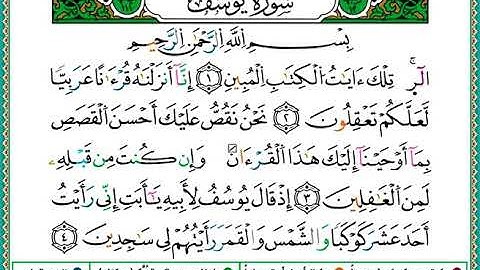 سُورَةُ يُوسُفَ
بِسْمِ اللَّهِ الرَّحْمَٰنِ الرَّحِيمِ
الٓر ۚ تِلْكَ ءَايَٰتُ الْكِتَٰبِ الْمُبِينِ ١ إِنَّآ أَنزَلْنَٰهُ قُرْءَٰنًا عَرَبِيًّا
لَّعَلَّكُمْ تَعْقِلُونَ ٢ نَحْنُ نَقُصُّ عَلَيْكَ أَحْسَنَ الْقَصَصِ
بِمَآ أَوْحَيْنَآ إِلَيْكَ هَٰذَا الْقُرْءَانَ وَإِن كُنتَ مِن قَبْلِهِۦ
لَمِنَ الْغَٰفِلِينَ ٣ إِذْ قَالَ يُوسُفُ لِأَبِيهِ يَٰٓأَبَتِ إِنِّى رَأَيْتُ
أَحَدَ عَشَرَ كَوْكَبًا وَالشَّمْسَ وَالْقَمَرَ رَأَيْتُهُمْ لِى سَٰجِدِينَ ٤